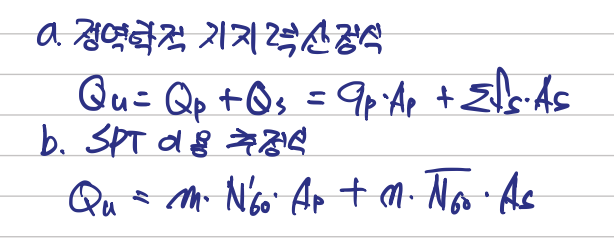 a. 정역학적 지지력산정식
Qu = Qp + Qs = qp·Ap + Σfs·As
b. SPT 이용 추정식
Qu = m·N'60·Ap + n·N̅6̅0̅·As